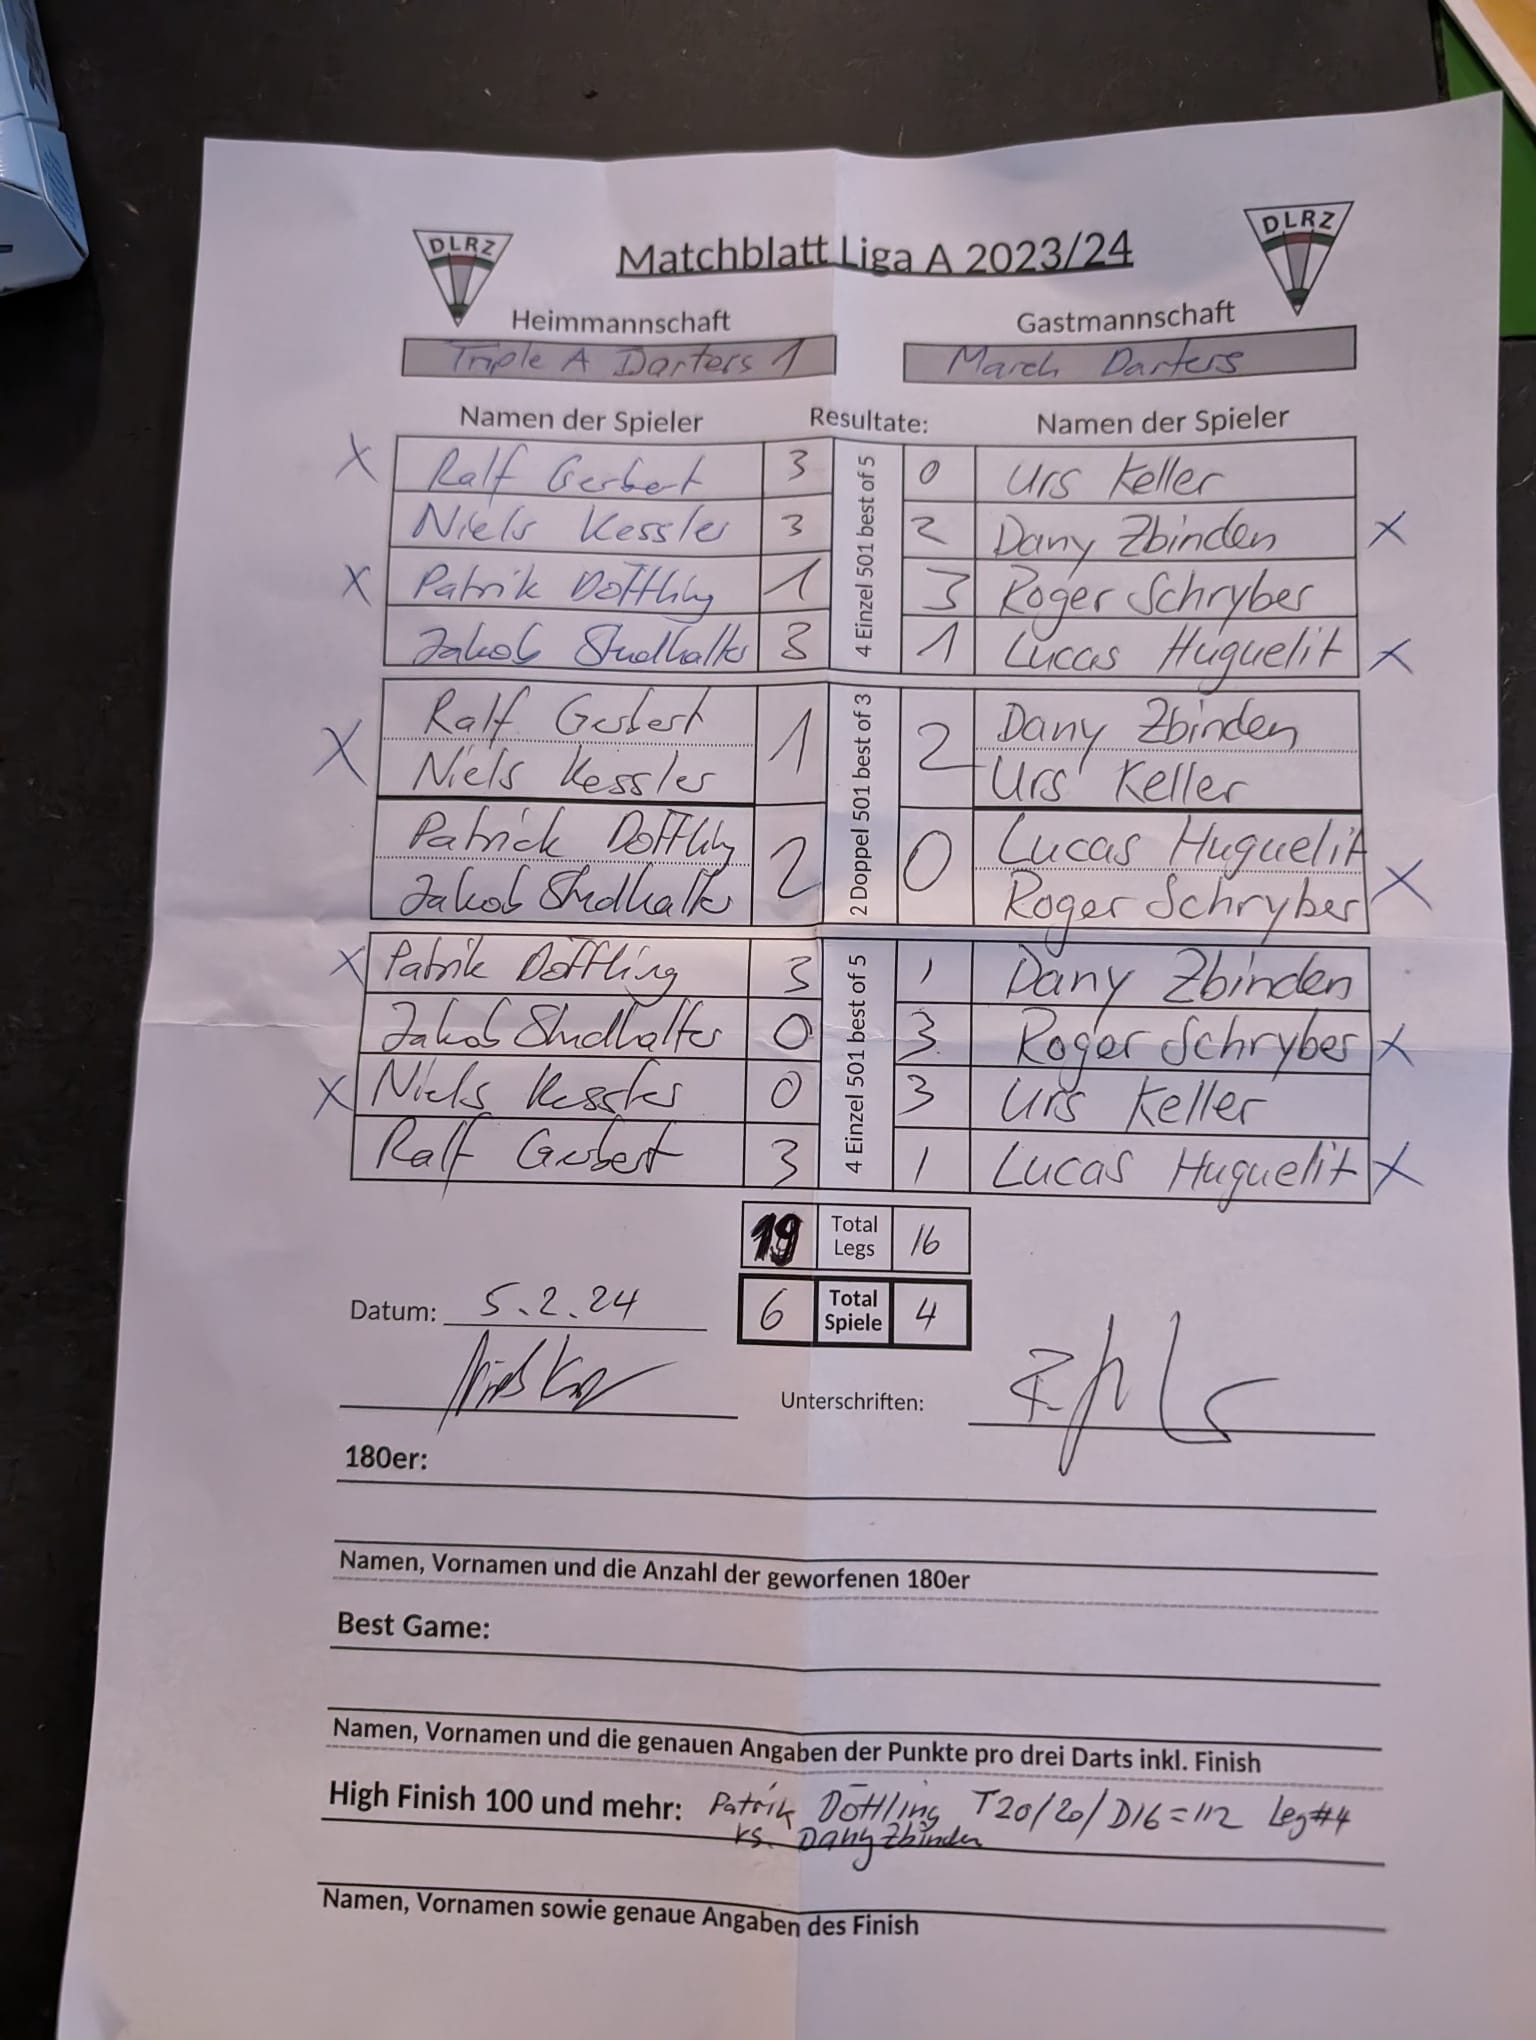 DLRZ Matchblatt Liga A 2023/24 DLRZ
Heimmannschaft Gastmannschaft
Triple A Darters 1 March Darters
Namen der Spieler Resultate: Namen der Spieler
X Ralf Gerbert 3 0 Urs Keller
Niels Kessler 3 2 Dany Zbinden X
X Patrik Döttling 1 3 Roger Schryber
Jakob Studhalter 3 1 Lucas Huguelit X
4 Einzel 501 best of 5
Ralf Gerbert Dany Zbinden
X 1 2
Niels Kessler Urs Keller
Patrick Döttling Lucas Huguelit
2 0 X
Jakob Studhalter Roger Schryber
2 Doppel 501 best of 3
X Patrik Döttling 3 1 Dany Zbinden
Jakob Studhalter 0 3 Roger Schryber X
X Niels Kessler 0 3 Urs Keller
Ralf Gerbert 3 1 Lucas Huguelit X
4 Einzel 501 best of 5
19 Total Legs 16
Datum: 5.2.24 6 Total Spiele 4
Unterschriften:
180er:
Namen, Vornamen und die Anzahl der geworfenen 180er
Best Game:
Namen, Vornamen und die genauen Angaben der Punkte pro drei Darts inkl. Finish
High Finish 100 und mehr: Patrik Döttling T20/20/D16=112 Leg#4
vs. Dany Zbinden
Namen, Vornamen sowie genaue Angaben des Finish